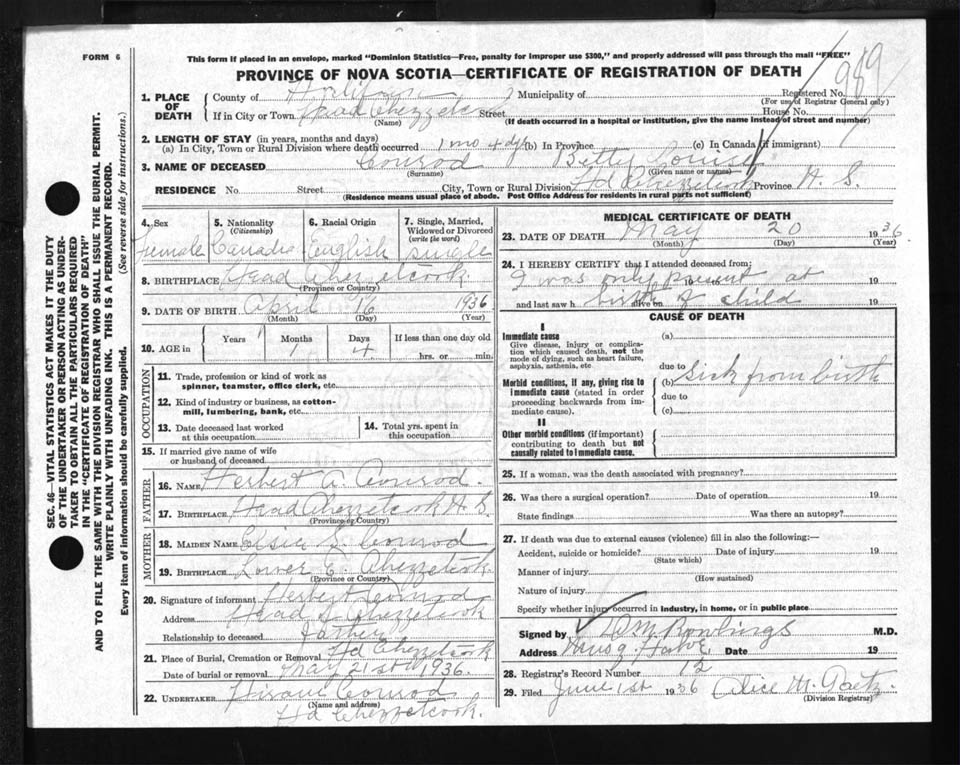 FORM 6
This form if placed in an envelope, marked "Dominion Statistics—Free, penalty for improper use $300," and properly addressed will pass through the mail "FREE"
PROVINCE OF NOVA SCOTIA—CERTIFICATE OF REGISTRATION OF DEATH
989
1. PLACE OF DEATH
County of Halifax Municipality of Registered No.
(For use of Registrar General only)
If in City or Town Head Chezzetcook Street House No.
(Name) (If death occurred in a hospital or institution, give the name instead of street and number)
2. LENGTH OF STAY (in years, months and days)
(a) In City, Town or Rural Division where death occurred 1 mo 4 dys (b) In Province (c) In Canada (if immigrant)
3. NAME OF DECEASED Conrod Betty Louise
(Surname) (Given name or names)
RESIDENCE No. Street City, Town or Rural Division Hd Chezzetcook Province N. S.
(Residence means usual place of abode. Post Office Address for residents in rural parts not sufficient)
4. Sex
Female
5. Nationality
(Citizenship)
6. Racial Origin
English
7. Single, Married, Widowed or Divorced
(write the word)
single
8. BIRTHPLACE Head Chezzetcook
(Province or Country)
9. DATE OF BIRTH April 16 1936
(Month) (Day) (Year)
10. AGE in
Years Months Days If less than one day old
1 4 hrs. or min.
OCCUPATION
11. Trade, profession or kind of work as spinner, teamster, office clerk, etc.
12. Kind of industry or business, as cotton-mill, lumbering, bank, etc.
13. Date deceased last worked at this occupation
14. Total yrs. spent in this occupation
15. If married give name of wife or husband of deceased
FATHER
16. NAME Herbert A. Conrod.
17. BIRTHPLACE Head Chezzetcook N. S.
(Province or Country)
MOTHER
18. MAIDEN NAME Elsie S. Conrod
19. BIRTHPLACE Lower E. Chezzetcook.
(Province or Country)
20. Signature of informant Herbert Conrod
Address Head Chezzetcook
Relationship to deceased father
21. Place of Burial, Cremation or Removal Hd Chezzetcook
Date of burial or removal May 21st 1936.
22. UNDERTAKER Hiram Conrod
(Name and address)
Hd Chezzetcook.
MEDICAL CERTIFICATE OF DEATH
23. DATE OF DEATH May 20 1936.
(Month) (Day) (Year)
24. I HEREBY CERTIFY that I attended deceased from:
I was only present at 19
and last saw h alive on birth of child 19
CAUSE OF DEATH
I
Immediate cause
Give disease, injury or complication which caused death, not the mode of dying, such as heart failure, asphyxia, asthenia, etc
(a)
due to
Morbid conditions, if any, giving rise to immediate cause (stated in order proceeding backwards from immediate cause).
(b) Sick from birth
due to
(c)
II
Other morbid conditions (if important) contributing to death but not causally related to immediate cause.
25. If a woman, was the death associated with pregnancy?
26. Was there a surgical operation? Date of operation 19
State findings Was there an autopsy?
27. If death was due to external causes (violence) fill in also the following:—
Accident, suicide or homicide? Date of injury 19
(State which)
Manner of injury
(How sustained)
Nature of injury
Specify whether injury occurred in industry, in home, or in public place
Signed by Rowlings M.D.
Address Musq. Harbr Date 19
28. Registrar's Record Number 12
29. Filed June 1st 1936 Alice M.
(Division Registrar)
SEC. 46—VITAL STATISTICS ACT MAKES IT THE DUTY
OF THE UNDERTAKER OR PERSON ACTING AS UNDER-
TAKER TO OBTAIN ALL THE PARTICULARS REQUIRED
IN THE "CERTIFICATE OF REGISTRATION OF DEATH"
AND TO FILE THE SAME WITH THE DIVISION REGISTRAR WHO SHALL ISSUE THE BURIAL PERMIT.
WRITE PLAINLY WITH UNFADING INK. THIS IS A PERMANENT RECORD.
Every item of information should be carefully supplied. (See reverse side for instructions.)